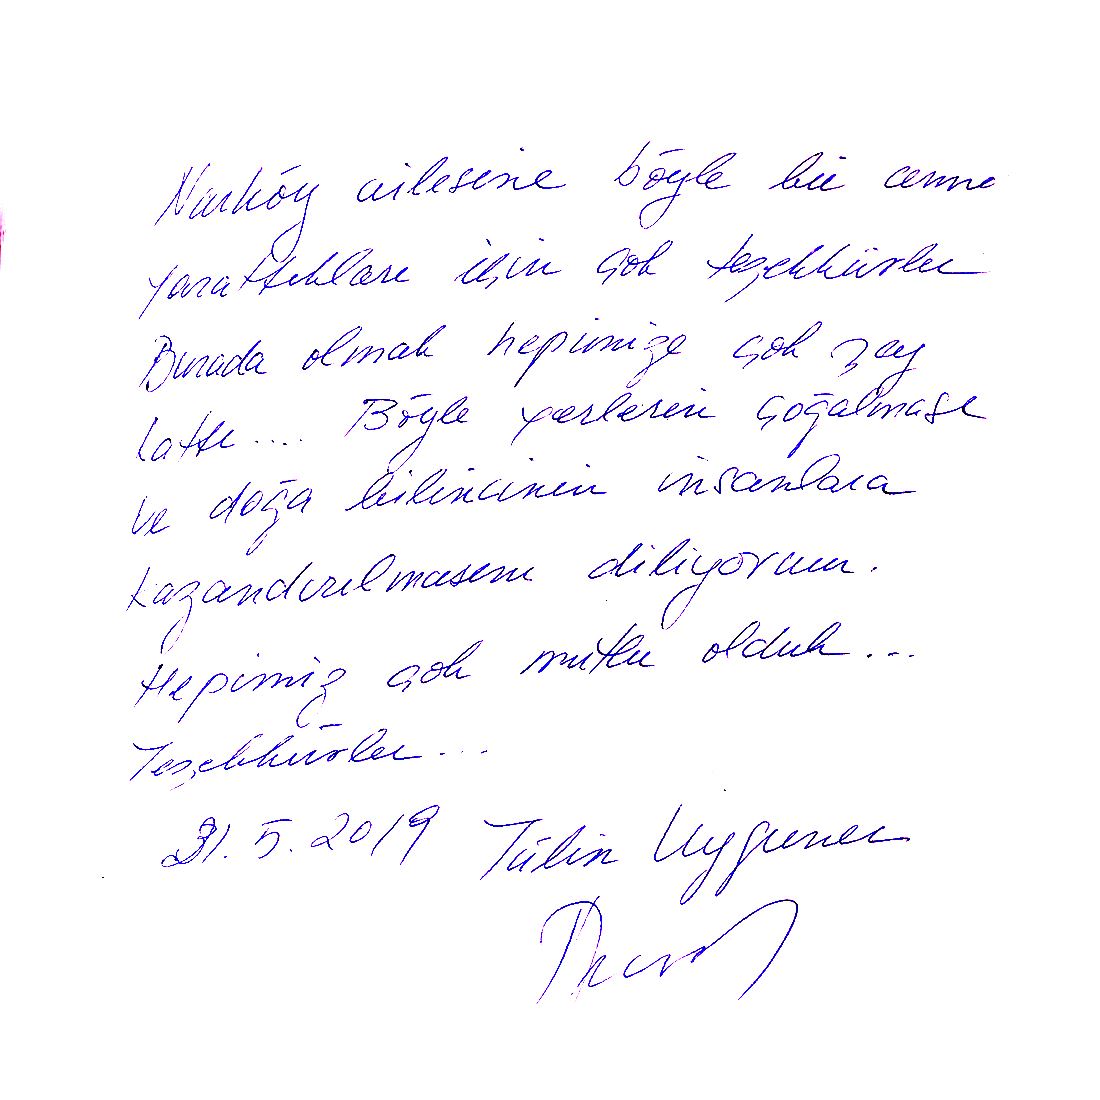 Narköy ailesine böyle bir cenne
yarattıkları için çok teşekkürler
Burada olmak hepimize çok
Böyle yerlerin çoğalması
ve doğa bilincinin insanlara
kazandırılmasını diliyorum.
Hepimiz çok mutlu olduk...
Teşekkürler...
31.5.2019 Tülin Uyguner